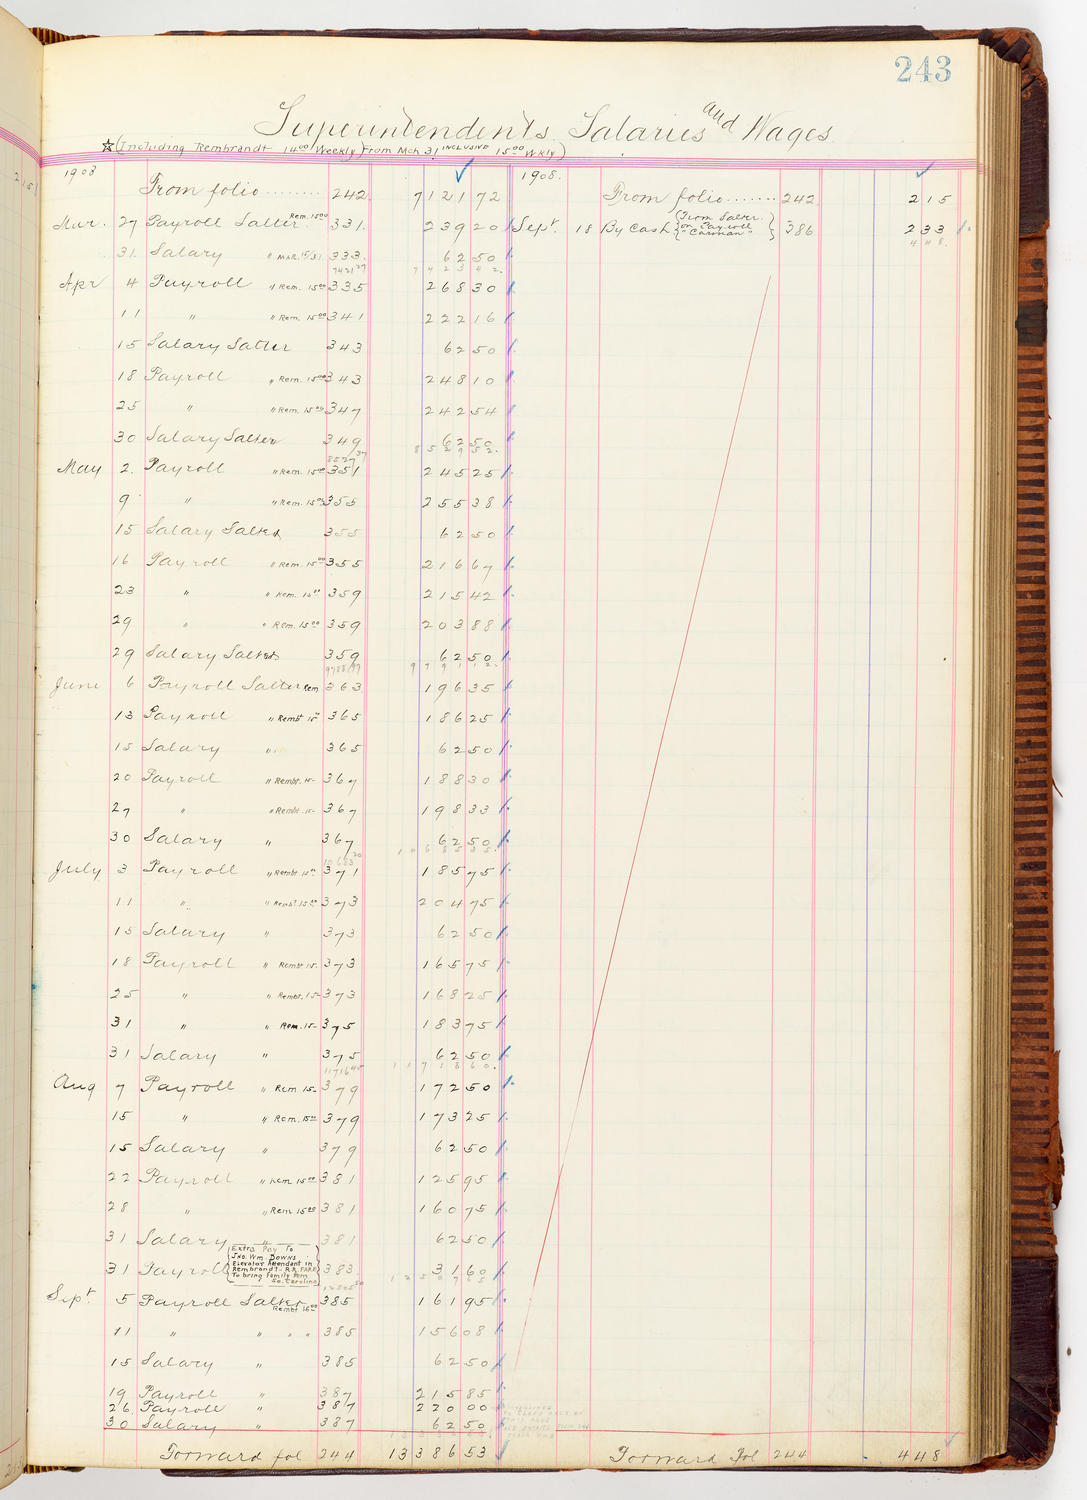 243
Superintendents Salaries and Wages
☆(Including Rembrandt 14⁰⁰ Weekly) From Mch 31 INCLUSIVE 15⁰⁰ Wkly)
1908
From folio ........ 242 7121 72
Mar. 27 Payroll Salter Rem. 15⁰⁰ 331. 239 20
31. Salary " 333. 62 50
7 4 2 3 4 2.
Apr 4 Payroll " Rem. 15⁰⁰ 335 268 30
11 " " Rem. 15⁰⁰ 341 222 16
15 Salary Salter 343 62 50
18 Payroll " Rem. 15⁰⁰ 343 248 10
25 " " Rem. 15⁰⁰ 347 242 54
30 Salary Salter 349 62 50
8 5 2 9 5 2.
May 2. Payroll " Rem. 15⁰⁰ 351 245 25
9 " " Rem. 15⁰⁰ 355 255 38
15 Salary Salter 355 62 50
16 Payroll " Rem. 15⁰⁰ 355 216 67
23 " " Rem. 15⁰⁰ 359 215 42
29 " " Rem. 15⁰⁰ 359 203 88
29 Salary Salter 359 62 50
9 7 9 1 1 2.
June 6 Payroll Salter Rem 363 196 35
13 Payroll " Rembt 15⁰⁰ 365 186 25
15 Salary " 365 62 50
20 Payroll " Rembt. 15- 367 188 30
27 " " Rembt. 15- 367 198 33
30 Salary " 367 62 50
1 0 6 8 5 3 5.
July 3 Payroll " Rembt 15⁰⁰ 371 185 75
11 " " Rembt. 15⁰⁰ 373 204 75
15 Salary " 373 62 50
18 Payroll " Rembt 15- 373 165 75
25 " " Rembt. 15- 373 168 25
31 " " Rem. 15- 375 183 75
31 Salary " 375 62 50
1 1 7 1 8 6 0.
Aug 7 Payroll " Rem 15- 379 172 50
15 " " Rem. 15⁰⁰ 379 173 25
15 Salary " 379 62 50
22 Payroll " Rem 15⁰⁰ 381 125 95
28 " " Rem 15⁰⁰ 381 160 75
31 Salary " 381 62 50
31 Payroll {Extra Pay To
Jno. Wm Downs
Elevator Attendant in
Rembrandt - R.R. FARE
To bring family from
So. Carolina} 383 31 60
Sept. 5 Payroll Salter Rembt 15⁰⁰ 385 161 95
11 " " " " 385 156 08
15 Salary " 385 62 50
19 Payroll " 387 215 85
26 Payroll " 387 220 00
30 Salary " 387 62 50
Forward fol 244 13386 53
1908.
From folio ....... 242 2 15
Sept. 18 By Cash {From Salter.
on Payroll
" Carman "} 386 2 33
4 48.
Forward Fol 244 4 48